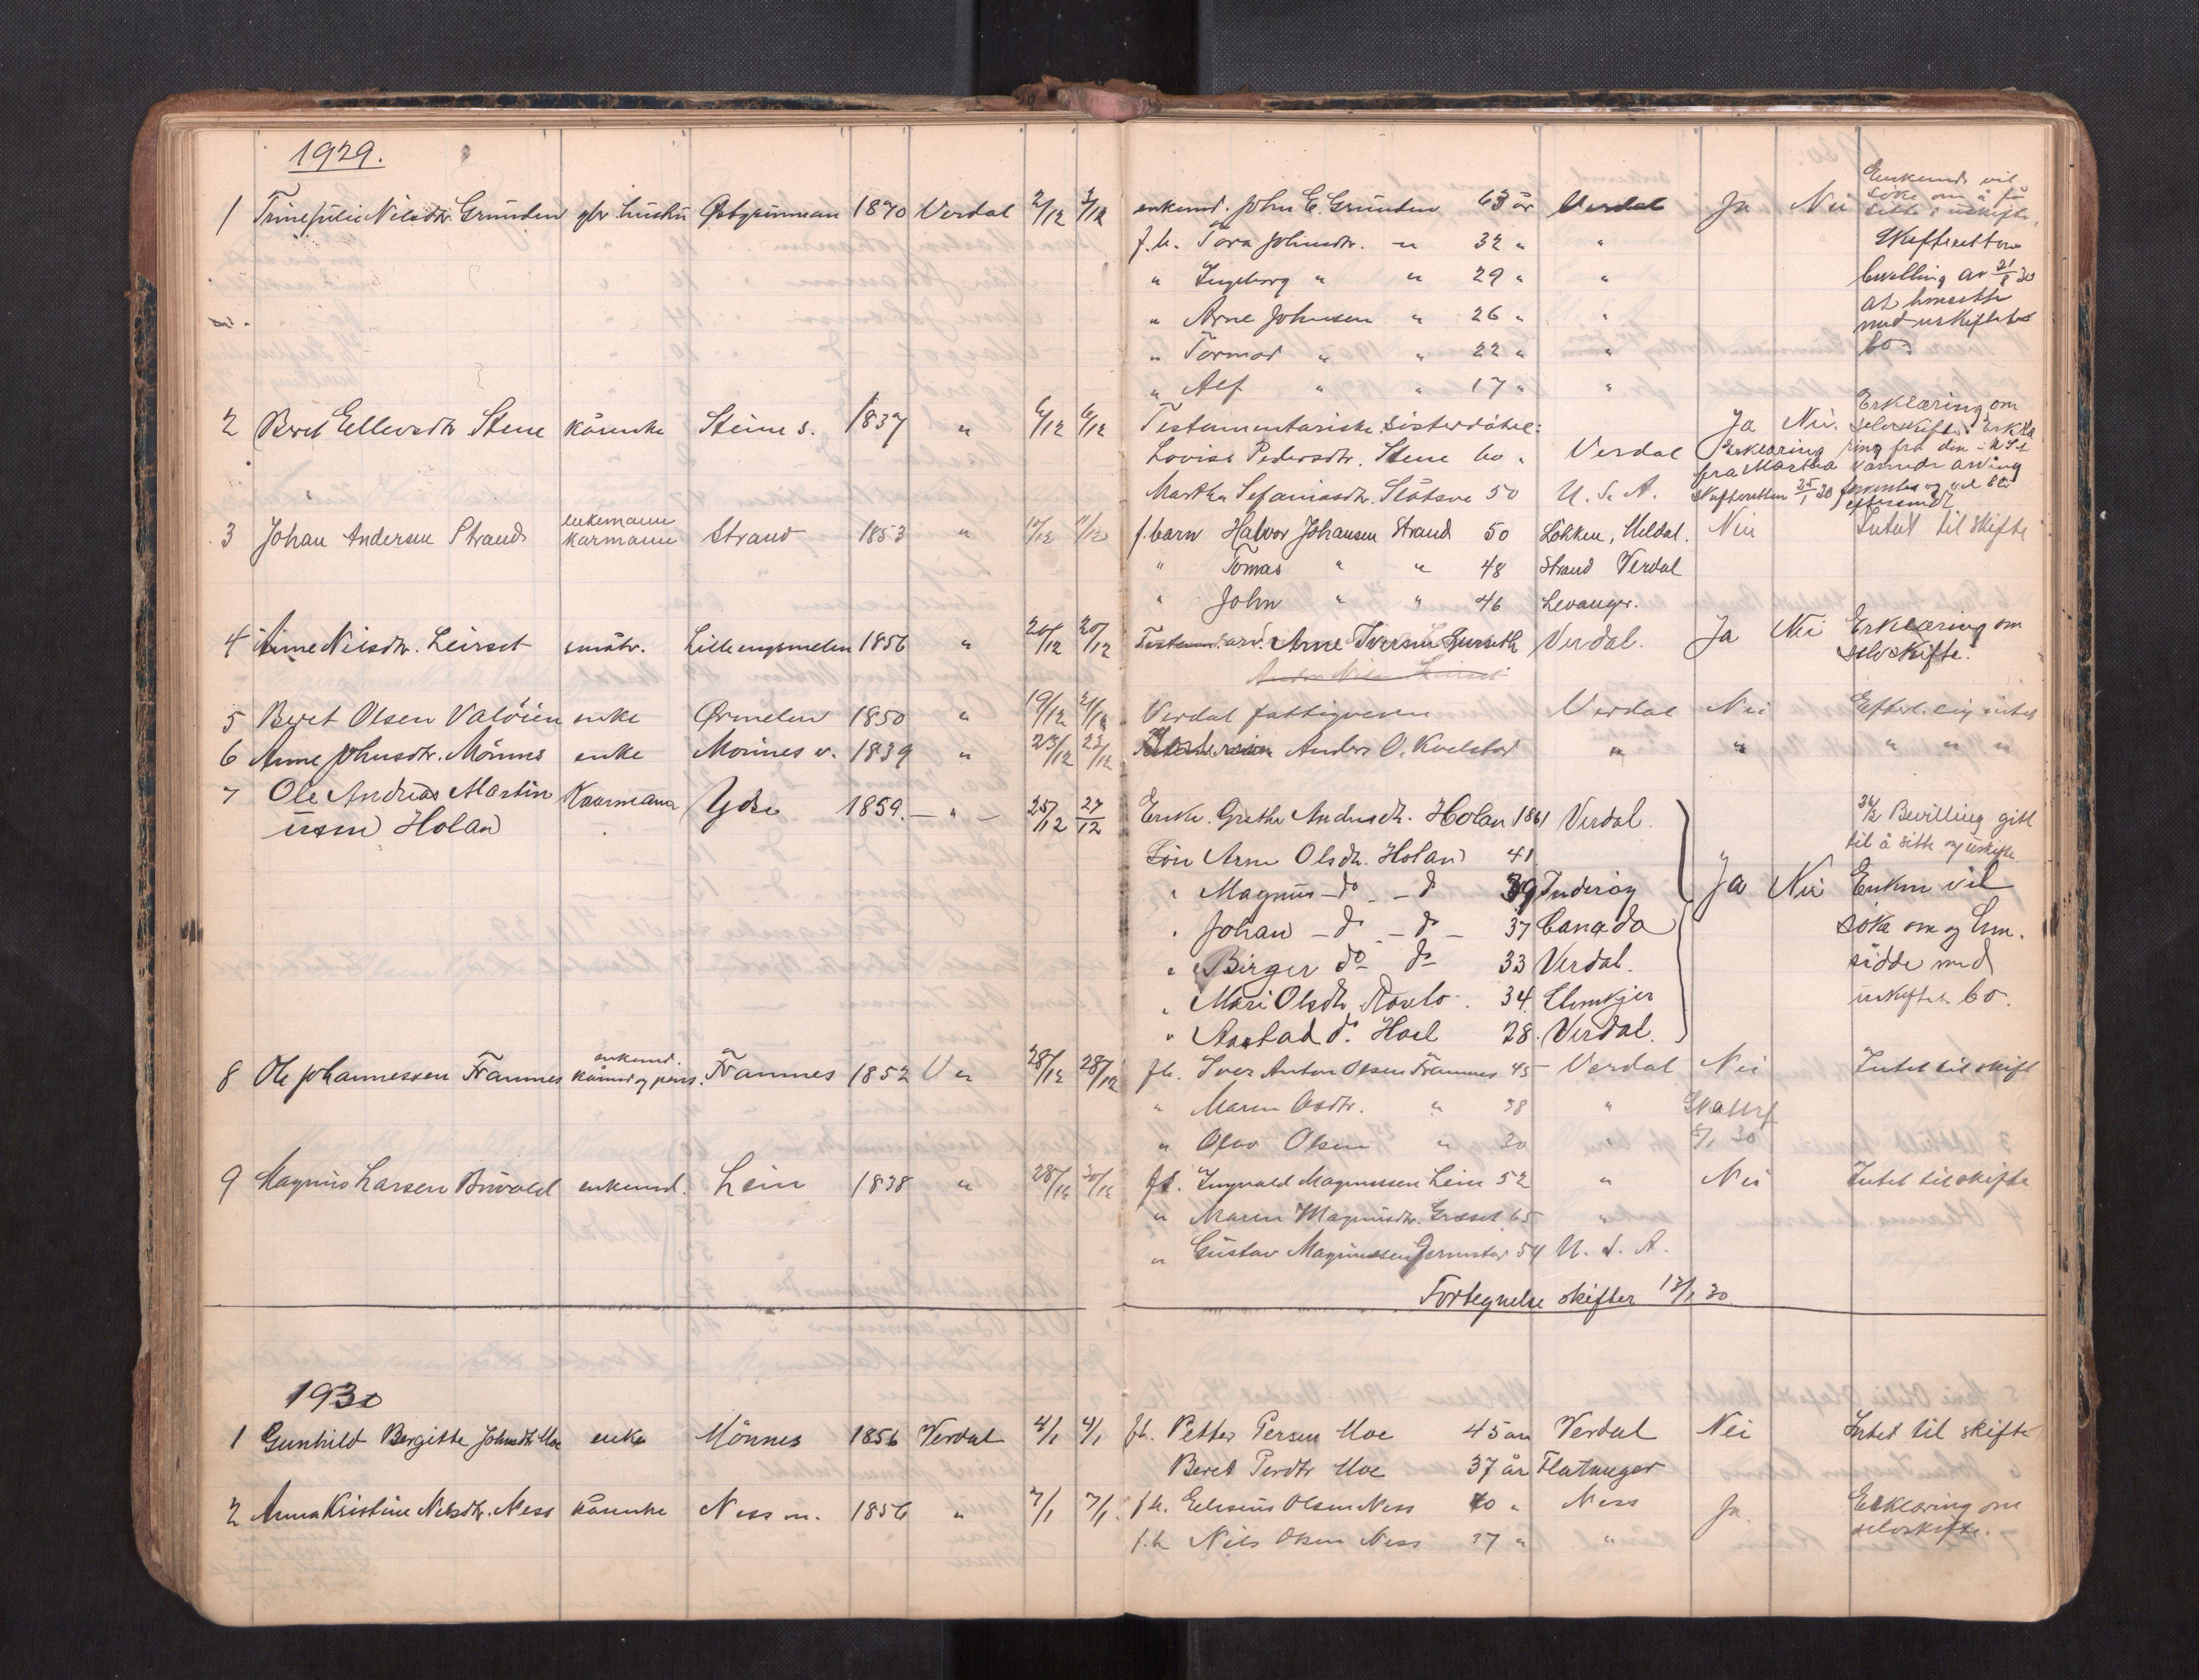 1929.
1 Trine Julie Nilsdtr. Grunden gbr hustru Østgrunnan 1870 Verdal 2/12 3/12 enkemd. John E. Grunden 63 år Verdal Ja Nei Enkemd. vil
søke om å få
sitte i uskifte.
f.b. Tora Johnsdtr. " 32 " " Skifteretten
" Ingeborg " " 29 " " bevilling av 21/1 30
" Arne Johnsen " 26 " " at hensitte
med uskiftet
" Tormod " " 22 " " bo.
" Alf " " 17 " "
2 Beret Ellevsdtr Stene kårenke Steine s. 1837 " 6/12 6/12 Testamentariske Ja Nei. Erklæring om
selvskifte.
Lovise Pedersdtr. Stene 60 " Verdal Erklæring fra din U.S.A.
Martha Sefaniasdtr. 50 U.S.A. fra Martha
Skifteretten 25/1 30
3 Johan Andersen Strand enkemann
karmann Strand 1853 " f. barn Halvor Johansen Strand 50 Løkken, Meldal. Nei Intet til skifte
" Tomas " " 48 Strand Verdal
" John " " 46 Levanger.
4 Anne Nilsdtr. Leirset 1856 " 20/12 20/12 Arne Iversen Verdal. Ja Nei Erklæring om
selvskifte.
5 Beret Olsen Valöien enke Ørmelen 1850 " 19/12 21/12 Verdal fattigvesen Verdal Nei Efterl. sig intet
6 Anne Johnsdtr. Mönnes enke Mönnes v. 1839 " 23/12 23/12 Anders O. Kvelstad " " " " "
7 Ole Andreas Martin
usen Holan Kaarmann Ydse 1859. — " — 25/12 27/12 Enke. Grethe Andersdtr. Holan 1861 Verdal. Bevilling gitt
til å sitte og uskifte.
Søn Arne Olsdtr. Holan 41
" Magnus do - do 39 Inderøy Ja Nei Enken vil
" Johan - do - do - 37 Canada søke om og hen.
" Birger do do 33 Verdal. sidde med
" Mari Olsdtr. 34. uskiftet bo.
" Aastad do. Hoel 28. Verdal.
8 Ole Johannessen Trannes enkemd.
kårmd og pens. Trannes 1852 V " 28/12 28/12 fb. Iver Anton Olsen Trannes 45 Verdal Nei Intet til skift
" Maren Olsdtr. " 38 "
" Olav Olsen " 30 " 8/1 30
9 Magnus Larsen Buvald enkemd. Lein 1838 " 28/12 30/12 fb. Ingvald Magnussen Lein 52 " Nei Intet til skifte
" Maren Magnusdtr. 65 "
" Gustav Magnussen Germstad 54 U.S.A.
Fortegnelse skifter 13/1 30.
1930
1 Gunhild Bergitte Johnsdtr Moe enke Mönnes 1856 Verdal 4/1 4/1 fb. Petter Persen Moe 45 år Verdal Nei Intet til skifte
Beret Persdtr Moe 37 år Flatanger
2 Anna Kristine Nilsdtr. Ness kårenke Ness m. 1856 " 7/1 7/1 f.b. Eliseus Olsen Ness 40 " Ness Ja. Erklæring om
selvskifte.
f.b. Nils Olsen Ness 37 " "